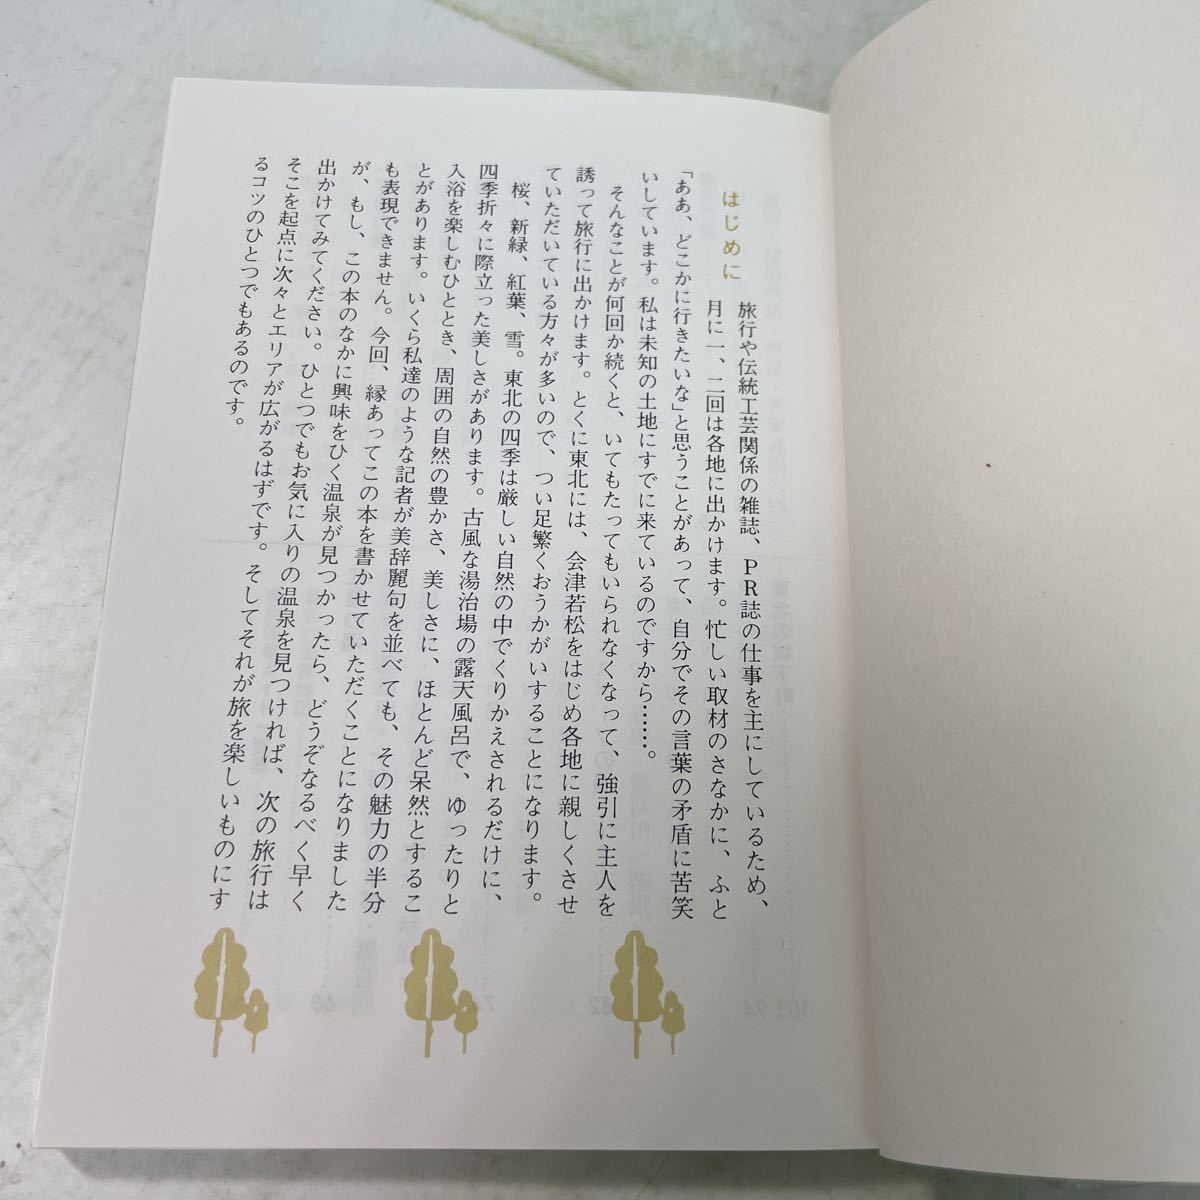 はじめに
旅行や伝統工芸関係の雑誌、PR誌の仕事を主にしているため、
月に一、二回は各地に出かけます。忙しい取材のさなかに、ふと
「ああ、どこかに行きたいな」と思うことがあって、自分でその言葉の矛盾に苦笑
いしています。私は未知の土地にすでに来ているのですから……。
そんなことが何回か続くと、いてもたってもいられなくなって、強引に主人を
誘って旅行に出かけます。とくに東北には、会津若松をはじめ各地に親しくさせ
ていただいている方々が多いので、つい足繁くおうかがいすることになります。
桜、新緑、紅葉、雪。東北の四季は厳しい自然の中でくりかえされるだけに、
四季折々に際立った美しさがあります。古風な湯治場の露天風呂で、ゆったりと
入浴を楽しむひととき、周囲の自然の豊かさ、美しさに、ほとんど呆然とするこ
とがあります。いくら私達のような記者が美辞麗句を並べても、その魅力の半分
も表現できません。今回、縁あってこの本を書かせていただくことになりました
が、もし、この本のなかに興味をひく温泉が見つかったら、どうぞなるべく早く
出かけてみてください。ひとつでもお気に入りの温泉を見つければ、次の旅行は
そこを起点に次々とエリアが広がるはずです。そしてそれが旅を楽しいものにす
るコツのひとつでもあるのです。